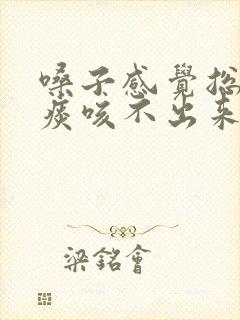 嗓子感覺總
痰咳不出來
梁銘會